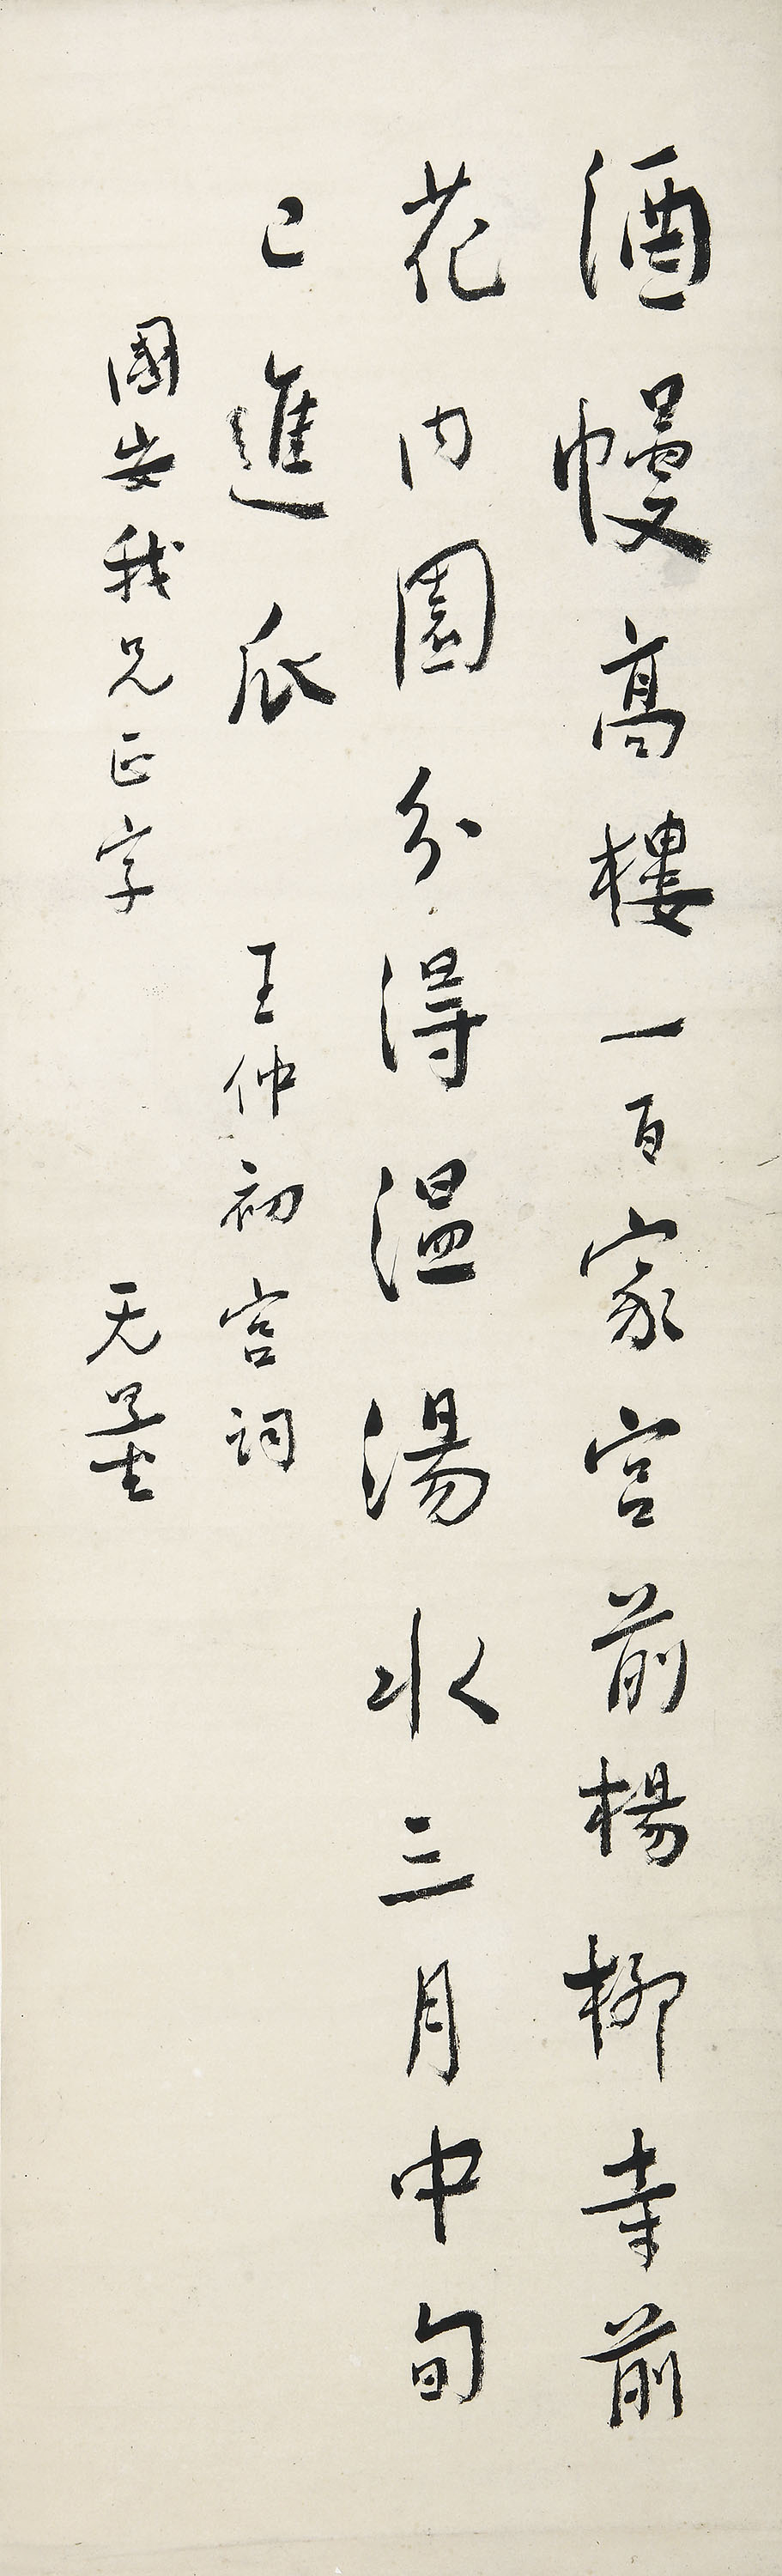 酒幔高樓一百家宮前楊柳寺前
花内園分得温湯水三月中旬
已進瓜 王仲初宮詞
國安我兄正字 无量